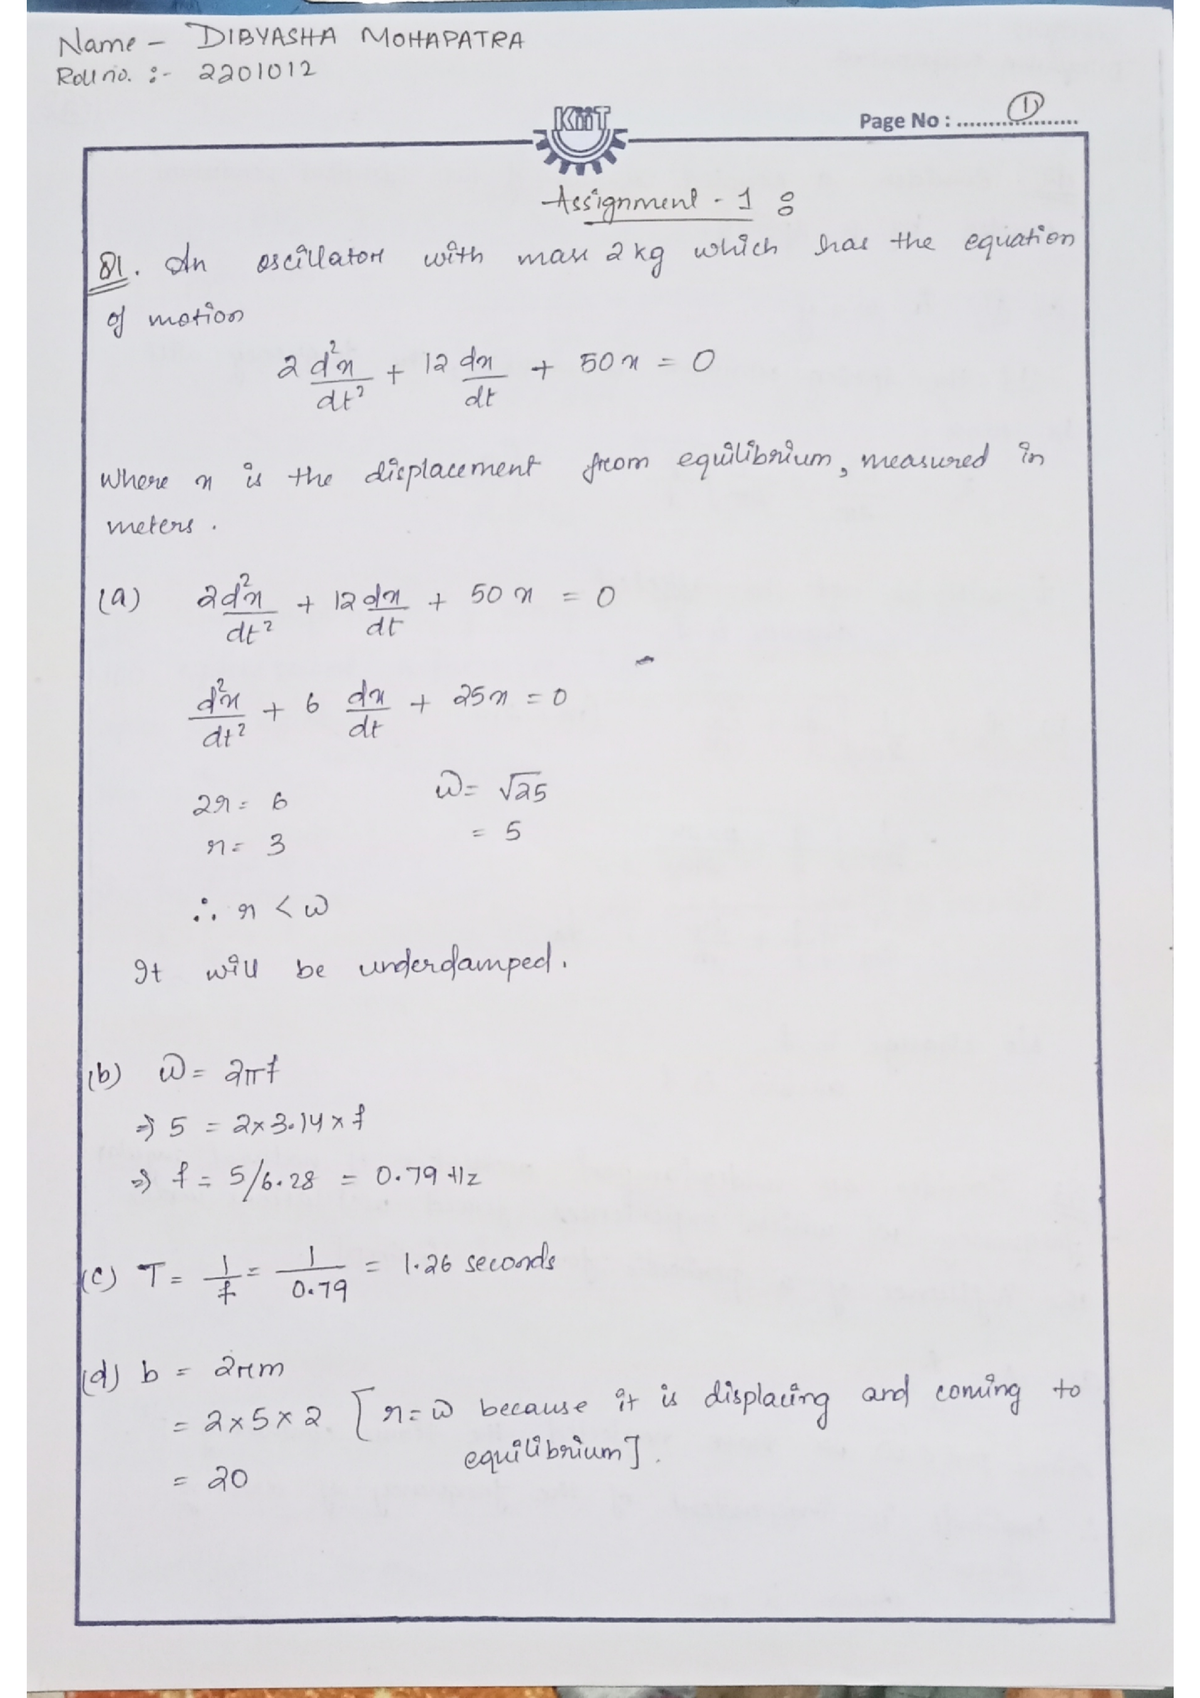 Name - DIBYASHA MOHAPATRA
Roll no. :- 2201012
KiiT
Page No : .......(1).......
Assignment - 1 :
Q1. An oscillator with mass 2 kg which has the equation
of motion
2 d²x/dt² + 12 dx/dt + 50 x = 0
Where x is the displacement from equilibrium, measured in
meters.
(a) 2d²x/dt² + 12 dx/dt + 50 x = 0
d²x/dt² + 6 dx/dt + 25x = 0
2r = 6 ω = √25
r = 3 = 5
∴ r < ω
It will be underdamped.
(b) ω = 2πf
⇒ 5 = 2 x 3.14 x f
⇒ f = 5/6.28 = 0.79 Hz
(c) T = 1/f = 1/0.79 = 1.26 seconds
(d) b = 2rm
= 2 x 5 x 2 [r = ω because it is displacing and coming to
equilibrium].
= 20